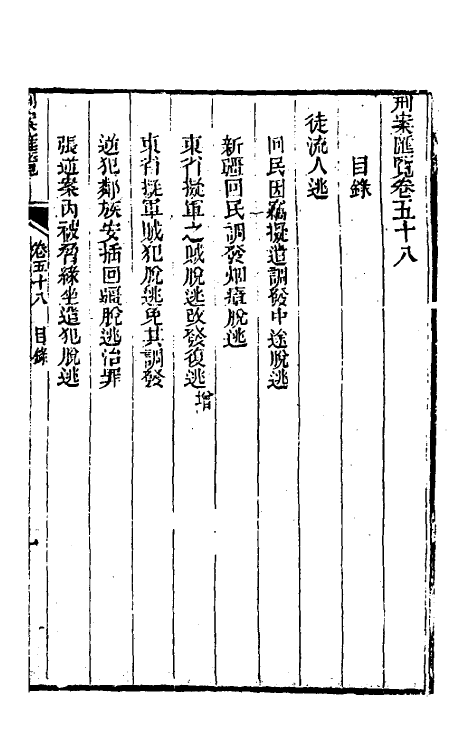 刑案匯覽卷五十八
目錄
徒流人逃
回民因竊擬遣調發中途脫逃
新疆回民調發烟瘴脫逃
東省擬軍之賊脫逃改發復逃 增
東省擬軍賊犯脫逃免其調發
逆犯鄰族安插回疆脫逃治罪
張逆案內被脅緣坐遣犯脫逃
刑案匯覽 卷五十八 目錄 一